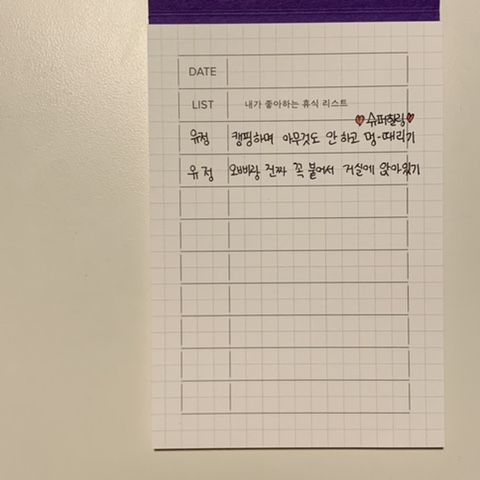 DATE
LIST 내가 좋아하는 휴식 리스트
수퍼힐링
유정 캠핑하며 아무것도 안 하고 멍-때리기
유정 오빠랑 진짜 꼭 붙어서 거실에 앉아있기